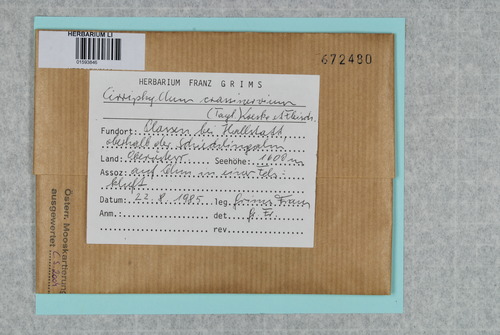 HERBARIUM LI
01593846
672480
HERBARIUM FRANZ GRIMS
Cirriphyllum crassinervium
(Tayl.) Loeske et Fleisch.
Fundort: bei Hallstatt
oberhalb der
Land: Seehöhe: 1600 m
Assoz: auf in einer Fels-
kluft
Datum: 22.8.1985 leg. Grims Franz
Anm.: det. Fr.
rev.
Österr. Mooskartierung
ausgewertet